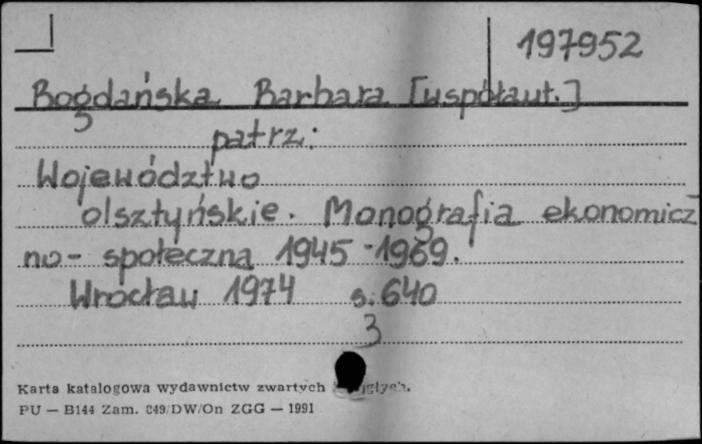 197952
Bogdańska Barbara [współaut.]
patrz:
Województwo
olsztyńskie. Monografia ekonomicz
no - społeczna 1945-1969.
Wrocław 1974 s. 640
3
Karta katalogowa wydawnictw zwartych
PU — B144 Zam. 849/DW/On ZGG — 1991